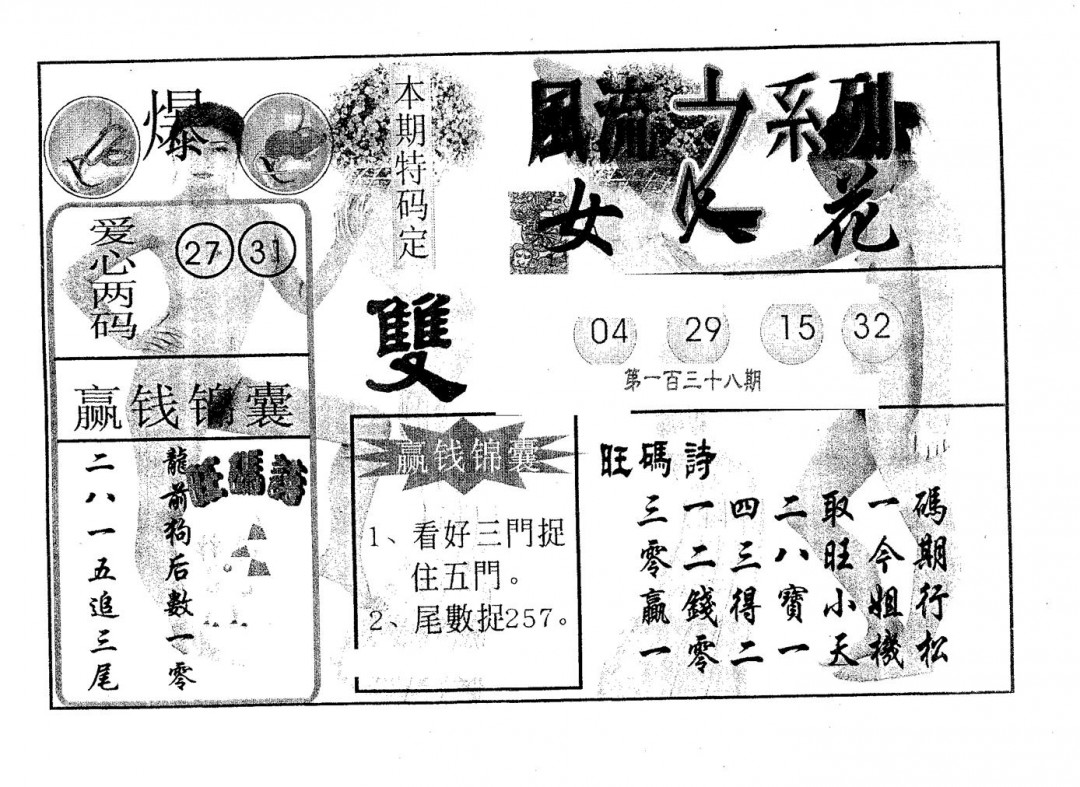 爆
本期特码定
雙
爱心两码
27 31
赢钱锦囊
旺碼詩
龍前狗后數一零
二八一五追三尾
風流之系列
女人花
04 29 15 32
第一百三十八期
赢钱锦囊
1、看好三門捉
住五門。
2、尾數捉257。
旺碼詩
三一四二取一碼
零二三八旺今期
贏錢得寶小姐行
一零二一天機松